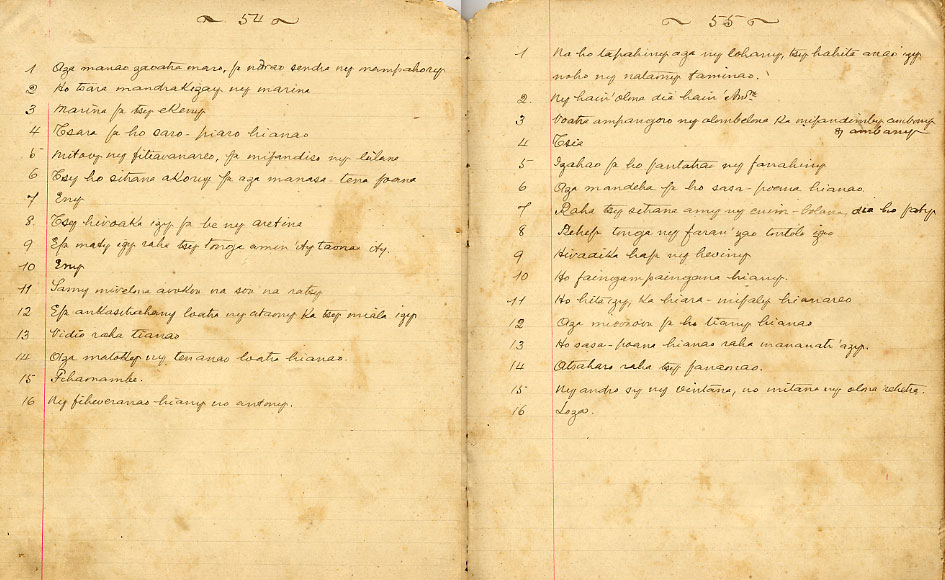 54
1 Aza manao zavatra maro, fa sendra ny mampahory
2 Ho tsara mandrakizay ny marina
3 Marina fa tsy ekeny
4 Tsara fa ho saro-piaro hianao
5 Mitovy ny fitiavanareo, fa mifandiso ny lalana
6 Tsy ho sitrana akory fa aza manasa-tena foana
7 Eny
8 Tsy hivoaka izy fa be ny aretina
9 Efa maty izy raha tsy tonga amin' ity taona ity.
10 Eny
11 Samy mivelona avokoa na soa na ratsy
12 Efa ankasitrahany loatra ny ataony ka tsy miala izy
13 Vidio raha tianao
14 Aza matoky ny tenanao loatra hianao.
15 Fehamambe.
16 Ny fiheveranao hiany no antony.
55
1 Na ho tapahiny aza ny lohany, tsy hahita anao izy
noho ny nataony taminao.
2. Ny hain' olona dia hain' Andr
3 Voatra ny olombelona ka mifandimby ambony
sy ambany
4 Tsia
5 Izahao fa ho fantatra ny fanahiny
6 Aza mandeha fa ho sasa-poana hianao.
7 Raha tsy sitrana amy ny enim-bolana, dia ho faty
8 Rehefa tonga ny faran' izao tontolo izao
9 Hivadika hafa ny heviny
10 Ho faingampaingana hiany.
11 Ho hita izy, ka hiara-mifaly hianareo
12 Aza miovaova fa ho tiany hianao
13 Ho sasa-poana hianao raha mananatr' azy.
14 Atahoro raha tsy fanaonao.
15 Ny andro sy ny vintana, no mitana ny olona rehetra.
16 Loza.